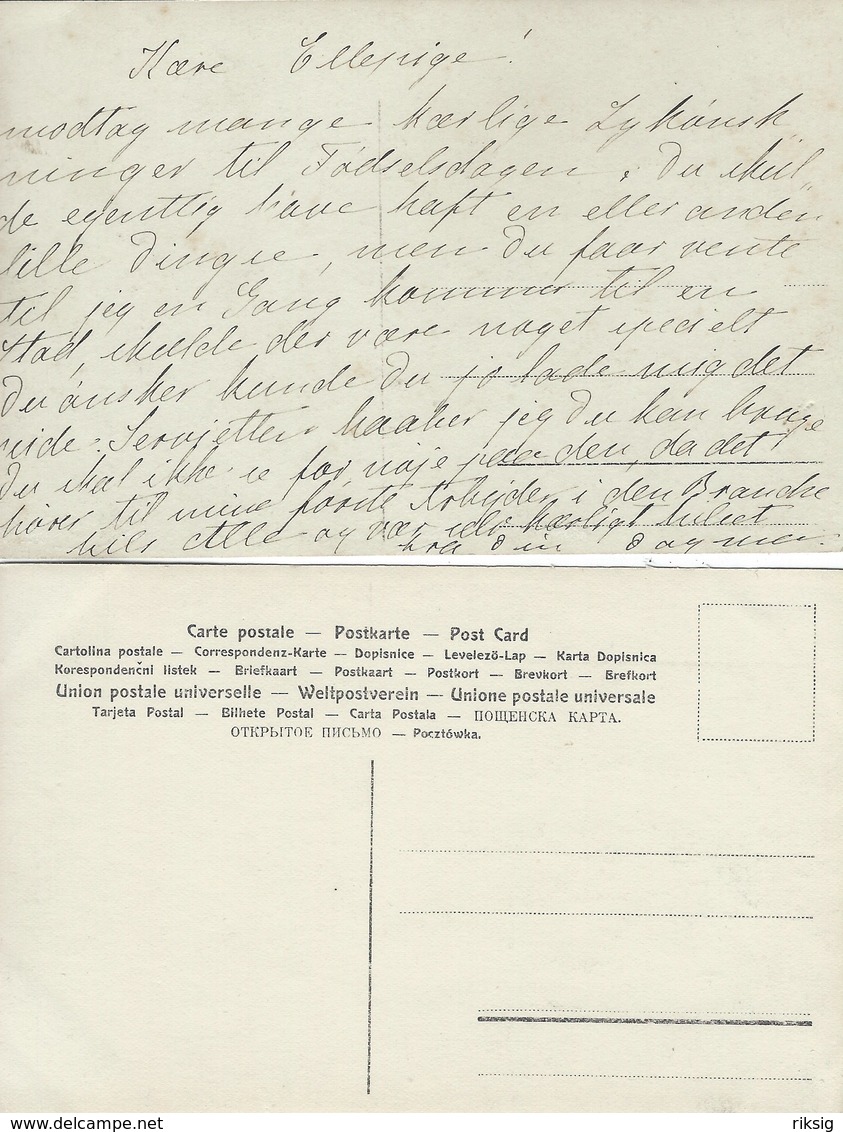 Kære Ellepige!
modtag mange kærlige Lykónsk„
ninger til Fódselsdagen, Du skul„
de egenttlig have haft en eller anden
lille Dingse, men Du faar vente
til jeg en Gang kommer til en
Stad, skulde der være noget specielt
Du ónsker kunde Du jo lade mig det
vide. Servietten haaber jeg Du kan bruge
Du skal ikke se for nóje paa den, da det
hórer til mine fórste Arbejder i den Branche
hils Alle og vær selv kærligt hilset
fra Din Dagmar.
Carte postale — Postkarte — Post Card
Cartolina postale — Correspondenz-Karte — Dopisnice — Levelezö-Lap — Karta Dopisnica
Korespondenční listek — Briefkaart — Postkaart — Postkort — Brevkort — Brefkort
Union postale universelle — Weltpostverein — Unione postale universale
Tarjeta Postal — Bilhete Postal — Carta Postala — ПОЩЕНСКА КАРТА.
ОТКРЫТОЕ ПИСЬМО — Pocztówka.
www.delcampe.net
riksig